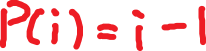 P(i) = i - 1